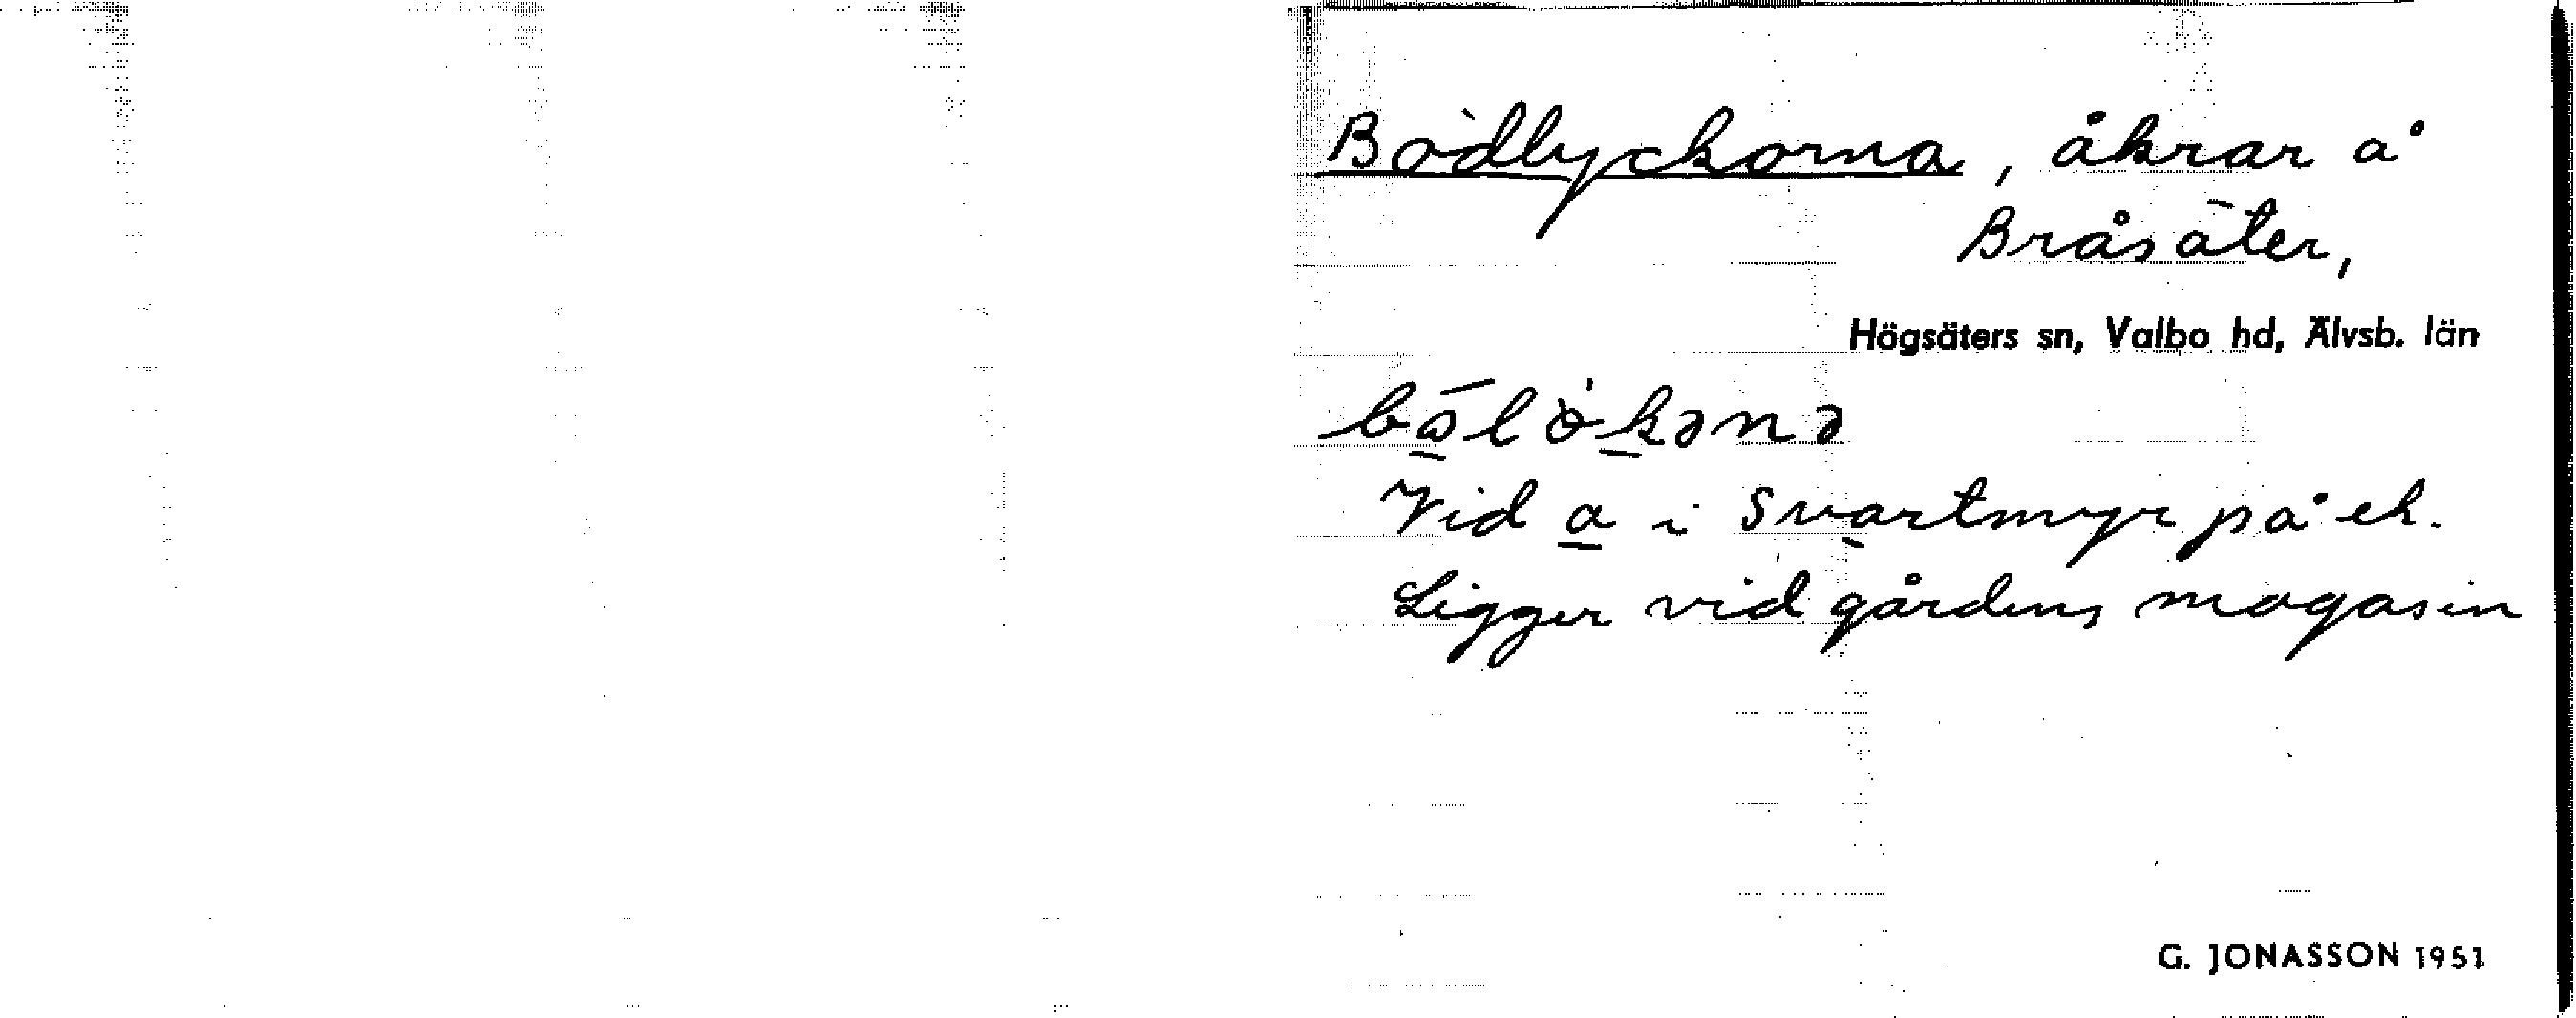 Bödlyckorna, åkrar å
Bråsäter,
Högsäters sn, Valbo hd, Älvsb. län
Vid a i Svartmyr på ek.
Ligger vid gårdens magasin
G. JONASSON 1951